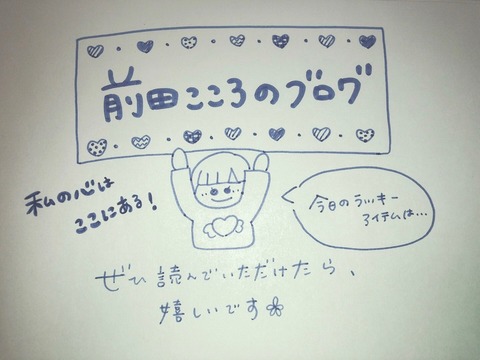 前田こころのブログ
私の心は
ここにある!
今日のラッキー
アイテムは…
ぜひ読んでいただけたら、
嬉しいです